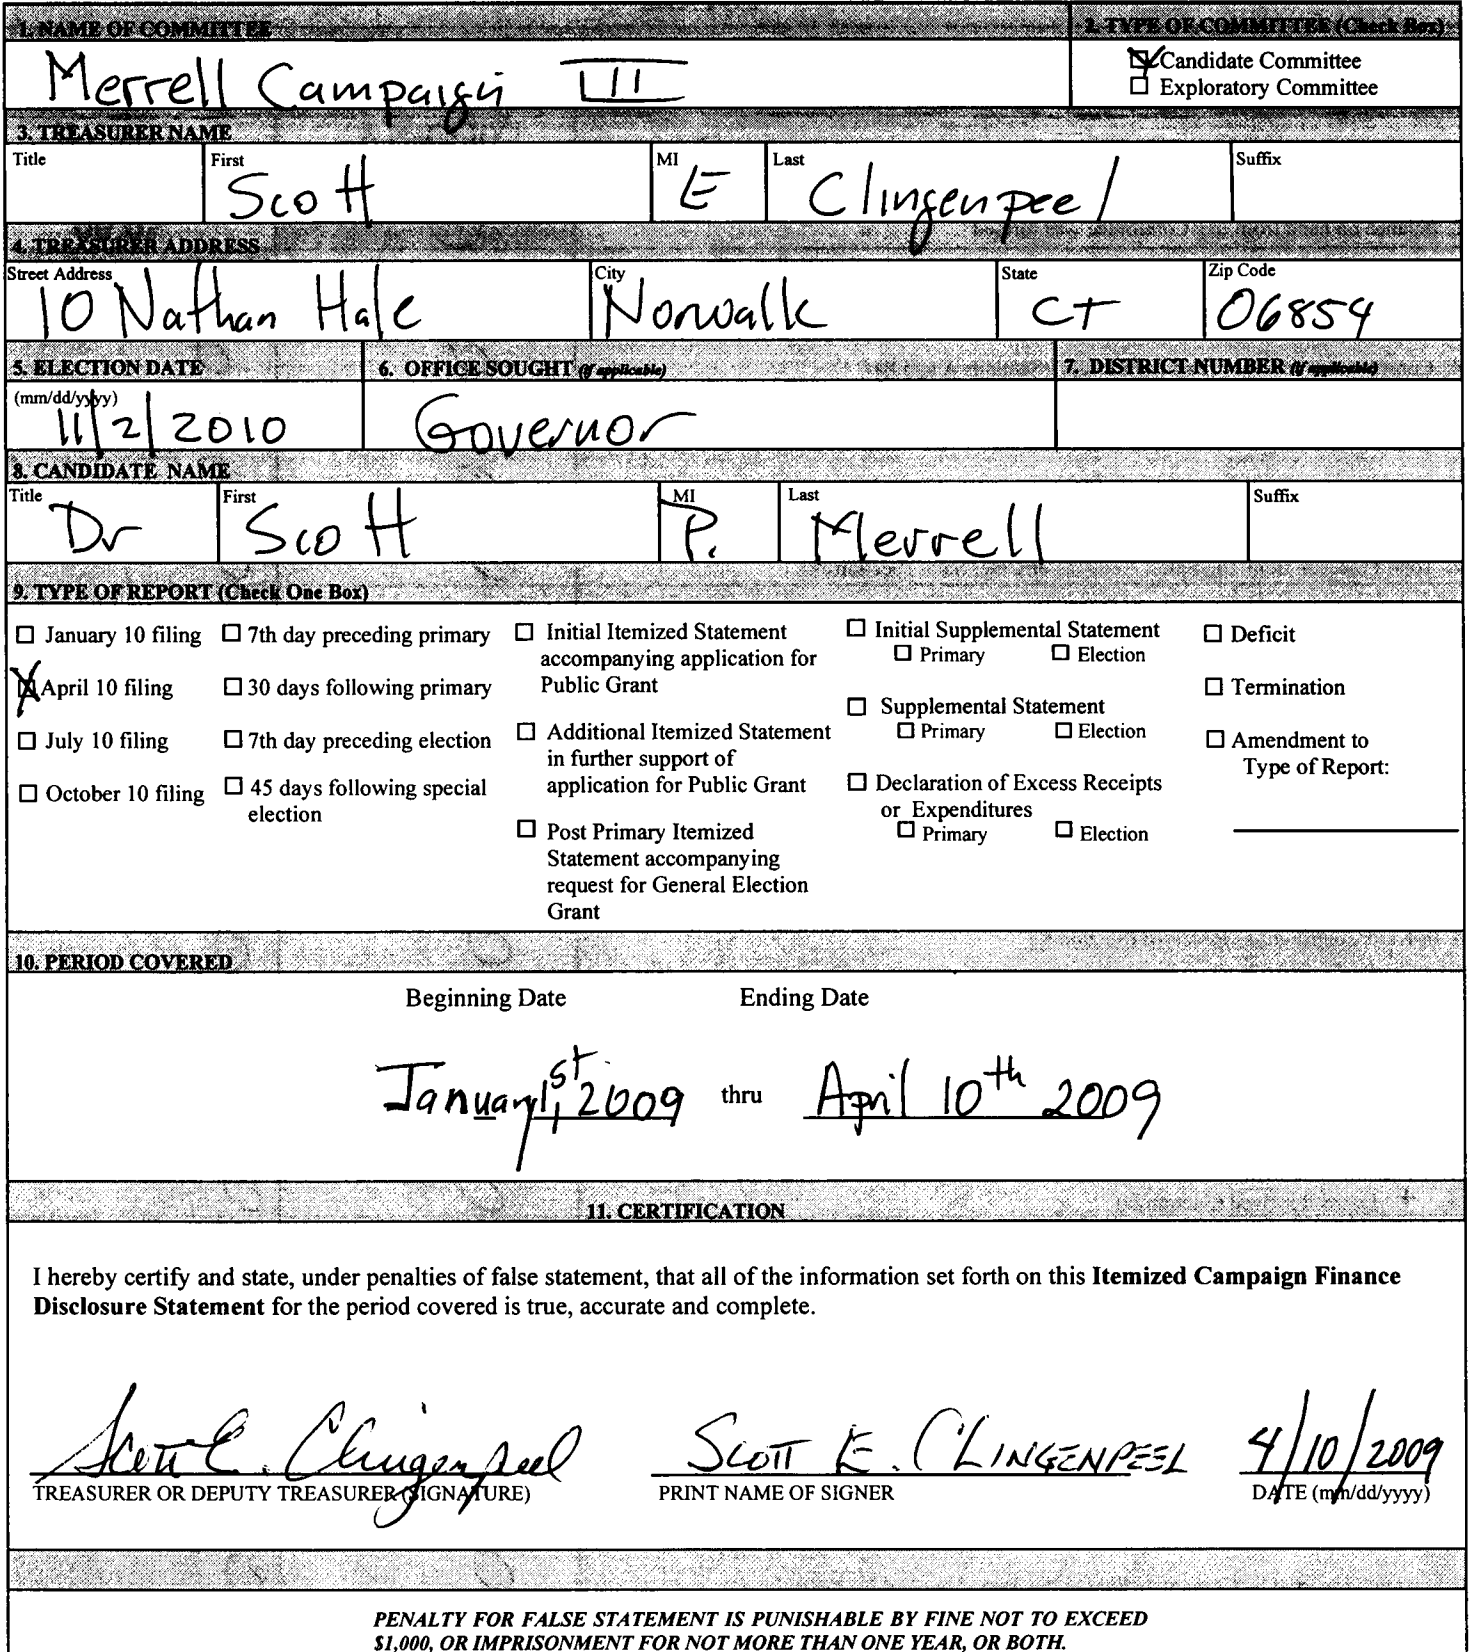 1. NAME OF COMMITTEE 2. TYPE OF COMMITTEE (Check Box)
Merrell Campaign III
Candidate Committee
Exploratory Committee
3. TREASURER NAME
Title First MI Last Suffix
Scott E Clingenpeel
4. TREASURER ADDRESS
Street Address City State Zip Code
10 Nathan Hale Norwalk CT 06854
5. ELECTION DATE 6. OFFICE SOUGHT (if applicable) 7. DISTRICT NUMBER (if applicable)
(mm/dd/yyyy)
11/2/2010 Governor
8. CANDIDATE NAME
Title First MI Last Suffix
Dr Scott P. Merrell
9. TYPE OF REPORT (Check One Box)
January 10 filing
April 10 filing
July 10 filing
October 10 filing
7th day preceding primary
30 days following primary
7th day preceding election
45 days following special
election
Initial Itemized Statement
accompanying application for
Public Grant
Additional Itemized Statement
in further support of
application for Public Grant
Post Primary Itemized
Statement accompanying
request for General Election
Grant
Initial Supplemental Statement
Primary Election
Supplemental Statement
Primary Election
Declaration of Excess Receipts
or Expenditures
Primary Election
Deficit
Termination
Amendment to
Type of Report:
10. PERIOD COVERED
Beginning Date Ending Date
January 1st, 2009 thru April 10th 2009
11. CERTIFICATION
I hereby certify and state, under penalties of false statement, that all of the information set forth on this Itemized Campaign Finance
Disclosure Statement for the period covered is true, accurate and complete.
Scott E. Clingenpeel SCOTT E. CLINGENPEEL 4/10/2009
TREASURER OR DEPUTY TREASURER (SIGNATURE) PRINT NAME OF SIGNER DATE (mm/dd/yyyy)
PENALTY FOR FALSE STATEMENT IS PUNISHABLE BY FINE NOT TO EXCEED
$1,000, OR IMPRISONMENT FOR NOT MORE THAN ONE YEAR, OR BOTH.